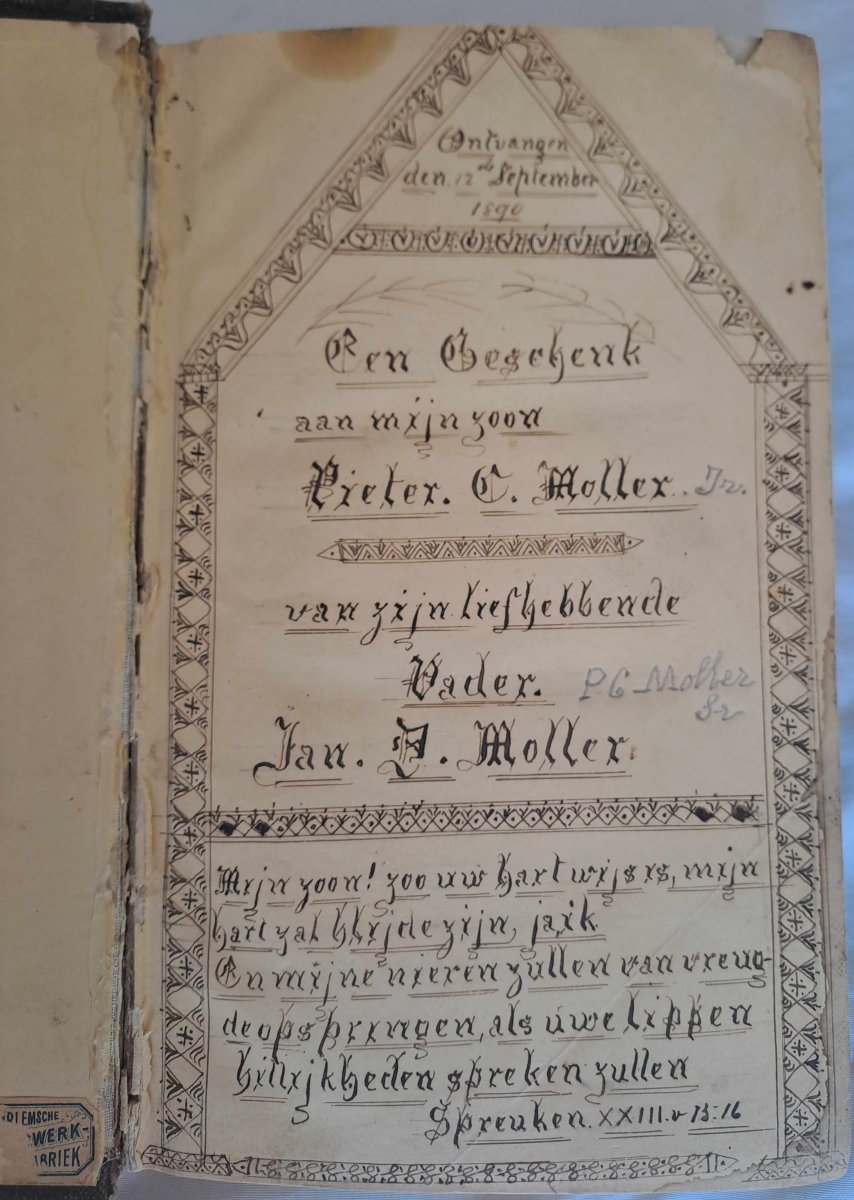 Ontvangen
den 12de September
1890
Een Geschenk
aan mijn zoon
Pieter. C. Moller. Jr.
van zijn liefhebbende
Vader. P C Moller
Sr
Jan. Moller.
Mijn zoon! zoo uw hart wijs is, mijn
hart zal blijde zijn, ja, ik
En mijne nieren zullen van vreug-
de opspringen, als uwe lippen
billijkheden spreken zullen
Spreuken. XXIII. v 15. 16
DIEMSCHE
WERK-
BRIEK